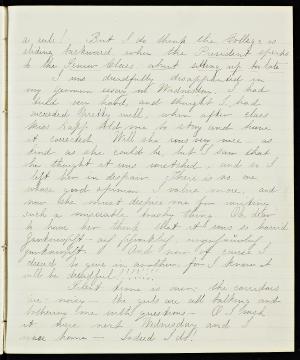 a rule! But I do think the College is
sliding backward, when the President speaks
to the Senior Class about sitting up too late
I was dreadfully disappointed in
my german essay on Wednesday. I had
tried very hard, and thought I had
succeeded pretty well, when after class
Miss Kapp told me to stay and have
it corrected. Well she was very nice, as
kind as she could be, but I saw that
she thought it was wretched, and so I
left her in despair. There is no one
whose good opinion I value more, and
now she must despise me for writing
such a miserable trashy thing. Oh dear
to have her think that it was so horrid
And now of course I
dread to give in another for I know it
will be dreadful!!!!!!
Silent time is over; the corridors
are noisy – the girls are all talking and
bothering me with questions – O I wish
it were next Wednesday and I
were home – Indeed I do!